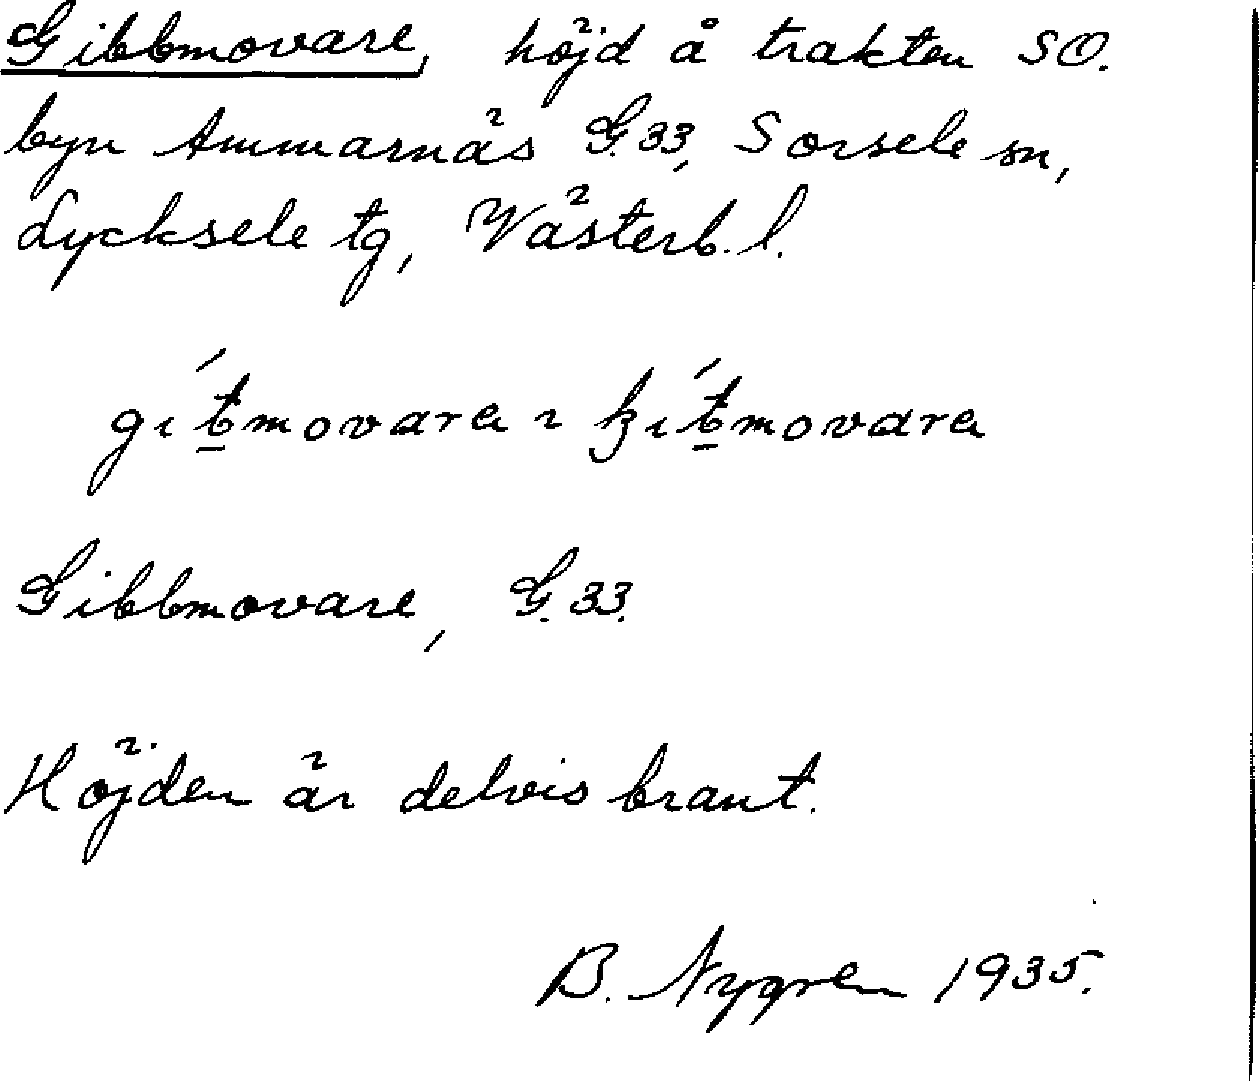 Gibbmovare, höjd å trakten SO.
byn Ammarnäs G.33, Sorsele sn,
Lycksele tg, Västerb. l.
Gibbmovare, G.33.
Höjden är delvis brant.
B. Nygren 1935.